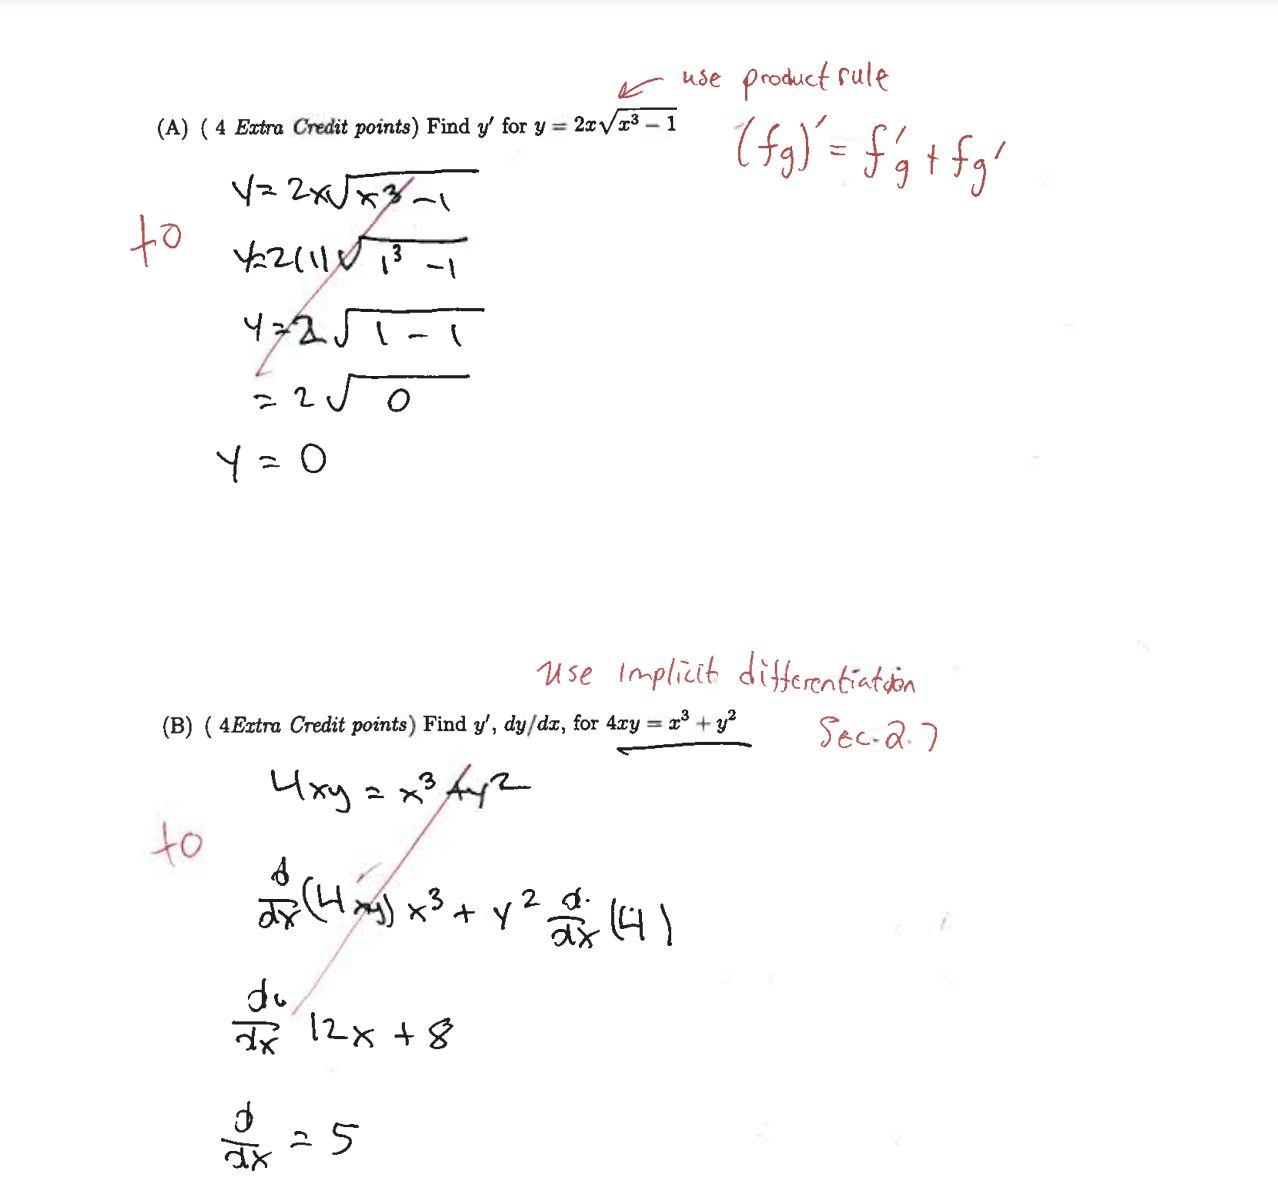 use product rule
(A) ( 4 Extra Credit points) Find y′ for y = 2x√(x³ − 1)
(fg)′ = f′g + fg′
y = 2x√(x³ − 1)
+0
y = 2(1)√(1³ − 1)
y = 2√(1 − 1)
= 2√0
y = 0
use implicit differentiation
(B) ( 4Extra Credit points) Find y′, dy/dx, for 4xy = x³ + y²
Sec. 2.7
4xy = x³ + y²
+0
d/dx (4xy) x³ + y² d/dx (4)
12x + 8
d/dx = 5